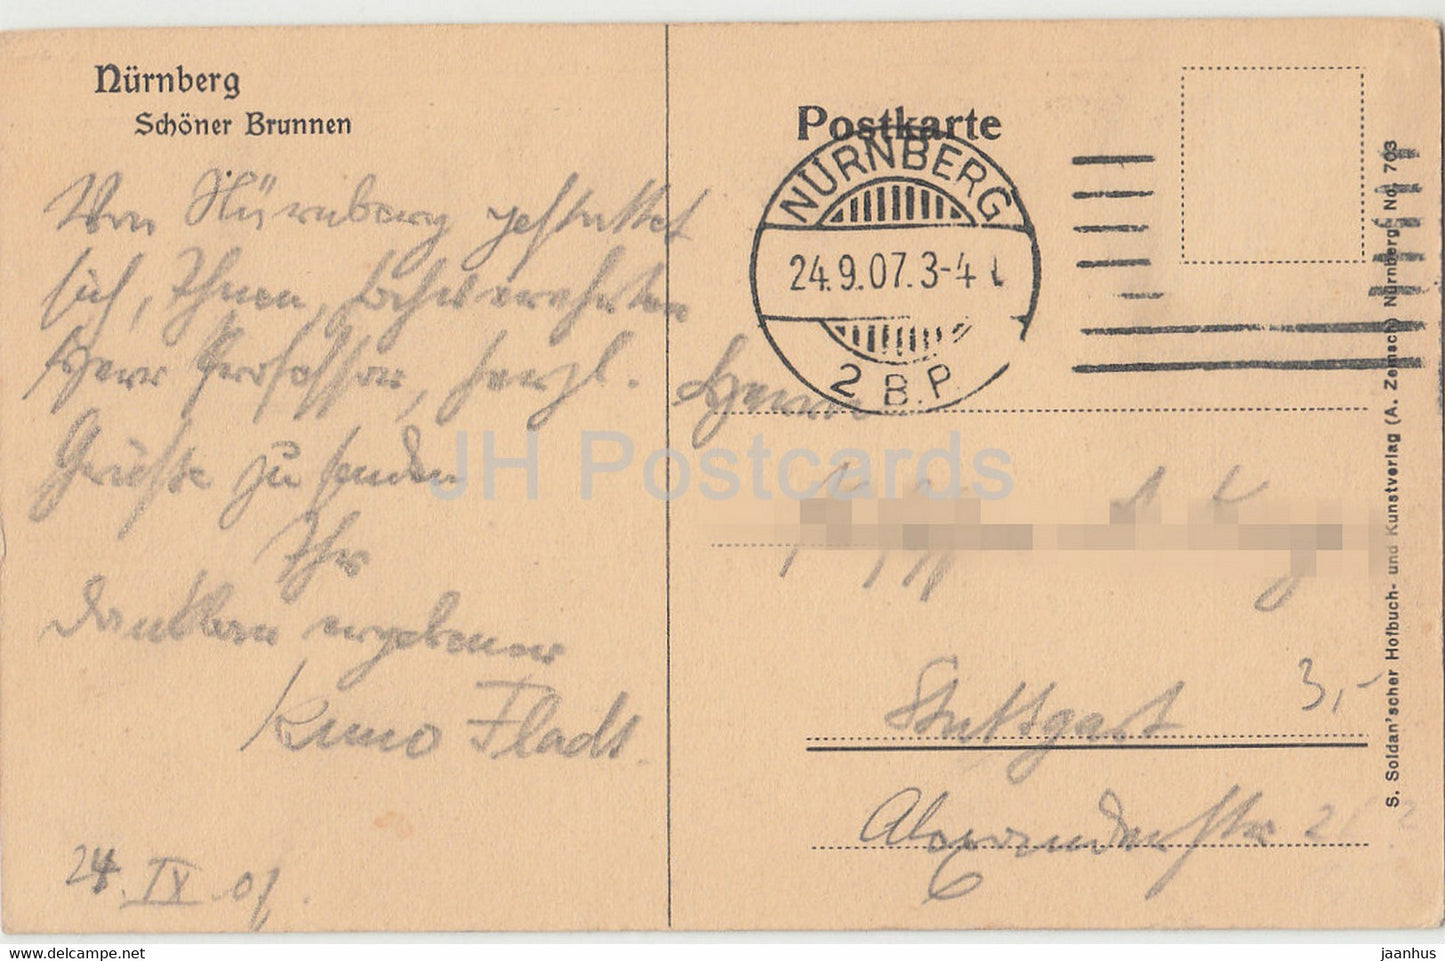 Nürnberg
Schöner Brunnen
Von Nürnberg gestattet
sich, Ihnen, hochverehrter
Herr Professor, herzl.
Grüsse zu senden
Ihr
dankbar ergebener
Kuno Fladt.
24. IX. 07.
Postkarte
NÜRNBERG
24.9.07. 3-4
2 B.P.
Herrn
Stuttgart
3,-
Alexanderstr
S. Soldan'scher Hofbuch- und Kunstverlag (A. Zemsch) Nürnberg. No. 703
JH Postcards
https://www.jh-postcards.com/
jaanhus